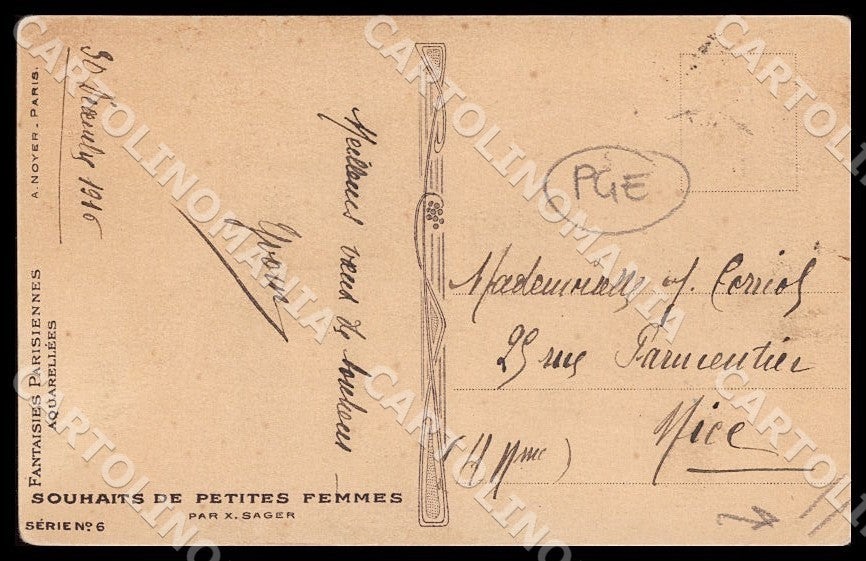 30 Décembre 1916
Meilleurs vœux de bonheur
A. NOYER - PARIS.
FANTAISIES PARISIENNES
AQUARELLÉES
SOUHAITS DE PETITES FEMMES
PAR X. SAGER
SÉRIE Nº 6
PGE
Mademoiselle J.
25 rue Parmentier
Nice
CARTOLINOMANIA
CARTOLINOMANIA
CARTOLINOMANIA
CARTOLINOMANIA
CARTOLINOMANIA
CARTOLINOMANIA